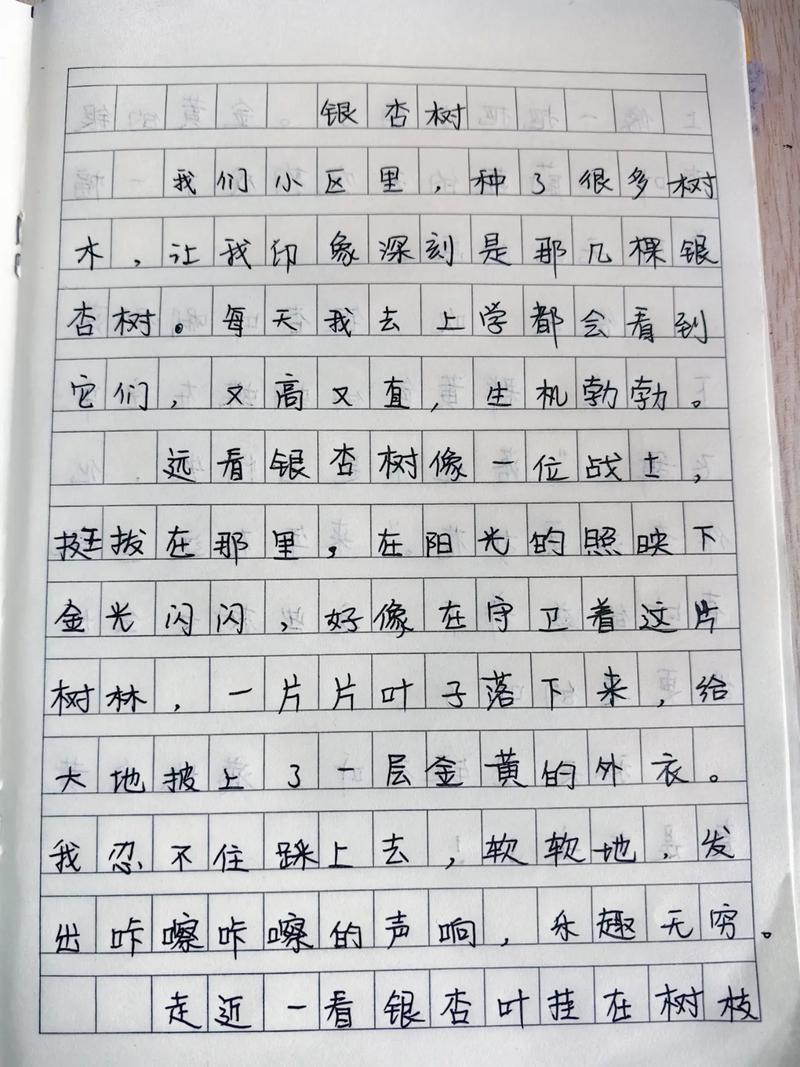 银杏树
我们小区里，种了很多树
木，让我印象深刻是那几棵银
杏树。每天我去上学都会看到
它们，又高又直，生机勃勃。
远看银杏树像一位战士，
挺拔在那里，在阳光的照映下
金光闪闪，好像在守卫着这片
树林，一片片叶子落下来，给
大地披上了一层金黄的外衣。
我忍不住踩上去，软软地，发
出咔嚓咔嚓的声响，乐趣无穷。
走近一看银杏叶挂在树枝